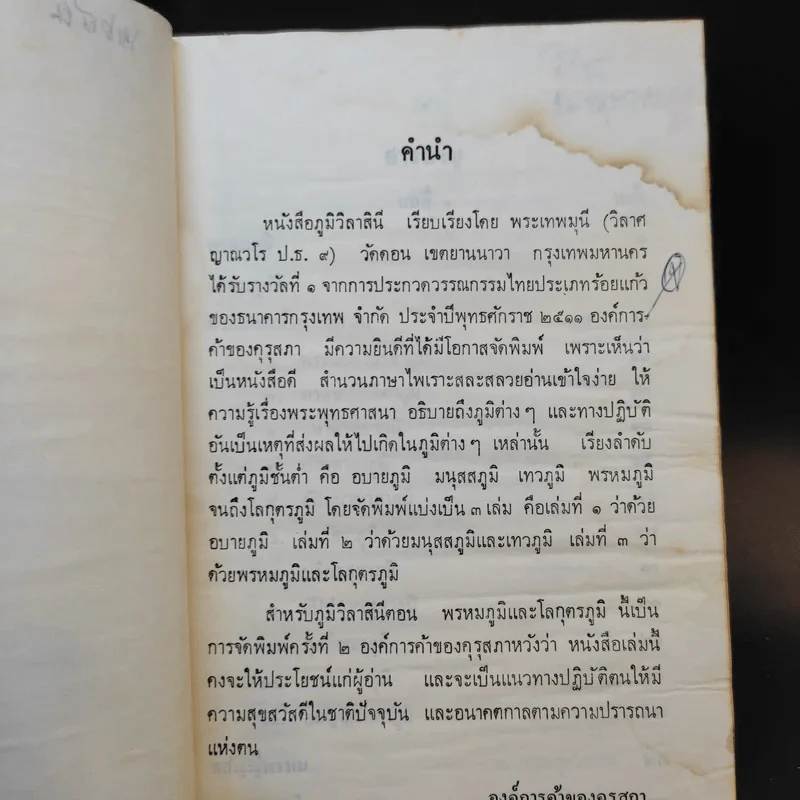 คำนำ
หนังสือภูมิวิลาสินี เรียบเรียงโดย พระเทพมุนี (วิลาศ
ญาณวโร ป.ธ. ๙) วัดดอน เขตยานนาวา กรุงเทพมหานคร
ได้รับรางวัลที่ ๑ จากการประกวดวรรณกรรมไทยประเภทร้อยแก้ว
ของธนาคารกรุงเทพ จำกัด ประจำปีพุทธศักราช ๒๕๑๑ องค์การ-
ค้าของคุรุสภา มีความยินดีที่ได้มีโอกาสจัดพิมพ์ เพราะเห็นว่า
เป็นหนังสือดี สำนวนภาษาไพเราะสละสลวยอ่านเข้าใจง่าย ให้
ความรู้เรื่องพระพุทธศาสนา อธิบายถึงภูมิต่าง ๆ และทางปฏิบัติ
อันเป็นเหตุที่ส่งผลให้ไปเกิดในภูมิต่าง ๆ เหล่านั้น เรียงลำดับ
ตั้งแต่ภูมิชั้นต่ำ คือ อบายภูมิ มนุสสภูมิ เทวภูมิ พรหมภูมิ
จนถึงโลกุตรภูมิ โดยจัดพิมพ์แบ่งเป็น ๓ เล่ม คือเล่มที่ ๑ ว่าด้วย
อบายภูมิ เล่มที่ ๒ ว่าด้วยมนุสสภูมิและเทวภูมิ เล่มที่ ๓ ว่า
ด้วยพรหมภูมิและโลกุตรภูมิ
สำหรับภูมิวิลาสินีตอน พรหมภูมิและโลกุตรภูมิ นี้เป็น
การจัดพิมพ์ครั้งที่ ๒ องค์การค้าของคุรุสภาหวังว่า หนังสือเล่มนี้
คงจะให้ประโยชน์แก่ผู้อ่าน และจะเป็นแนวทางปฏิบัติตนให้มี
ความสุขสวัสดีในชาติปัจจุบัน และอนาคตกาลตามความปรารถนา
แห่งตน
องค์การค้าของคุรุสภา